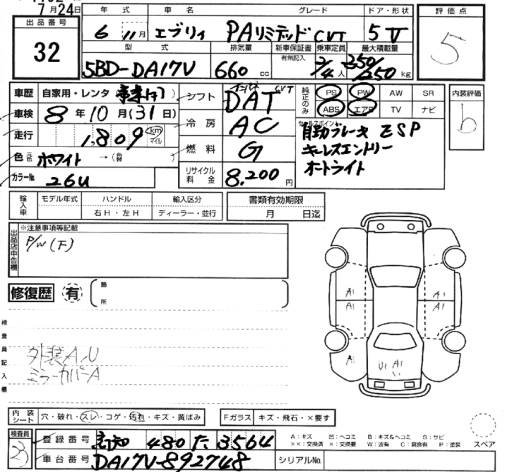 7月24日
出品番号
32
年式 車名 グレード ドア・形状
6年11月 エブリィ PAリミテッドCVT 5V
型式 排気量 新車保証書 乗車定員 最大積載量
5BD-DA17V 660cc 有例記入 2/4人 350/250kg
評価点
5
車歴 自家用・レンタ
車検 8年10月(31日)
走行 1,809 km マイル
色 ホワイト
カラー№ 26U
シフト DAT CVT
冷房 AC
燃料 G
リサイクル料金 8,200円
純正のみ PS PW AW SR
ABS エアB TV ナビ
セールスポイント
自動ブレーキ ESP
キーレスエントリー
オートライト
内装評価
b
輸入車 モデル年式 ハンドル 輸入区分
右H・左H ディーラー・並行
書類有効期限
月 日迄
出品店申告欄
※注意事項等記載
P/W(F)
修復歴 有 箇所
検査員記入欄
外装A,U
ミラーカバーA
A1 A1
A1 A1
U1 A1
内装シート 穴・破れ・スレ・コゲ・汚れ・キズ・黄ばみ
Fガラス キズ・飛石・×要す
検査員
登録番号 高知 480 な 3564
車台番号 DA17V-892748
シリアル№
A:キズ U:ヘコミ B:キズ&ヘコミ S:サビ
××:交換済 ×:要交換 W:波有 C:腐食有 P:塗装
スペア